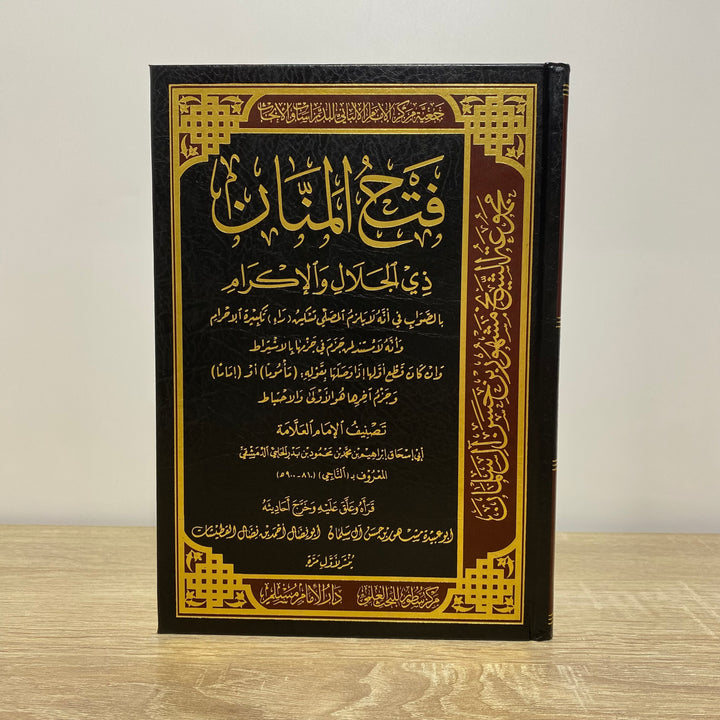 جمعية مركز الإمام الألباني للدراسات والأبحاث
فَتْحُ المَنَّانِ
ذِي الجَلَالِ وَالإِكْرَامِ
بالصَّوَابِ في أنَّه لا يلزمُ المصلّي تسكين (راء) تكبيرة الإحرام
وأنَّه لا مُستند لمن جزم في جزمها بالاشتراط
وإن كان قطع أوّلها إذا وصلها بقوله: (مأموماً) أو (إماما)
وجزم آخرها هو الأولى والاحتياط
تصنيف الإمام العلّامة
أبي إسحاق إبراهيم بن محمد بن محمود بن بدر الحلبي الدمشقي
المعروف بـ (الناجي) (٨١٠-٩٠٠ه)
قرأه وعلّق عليه وخرّج أحاديثه
أبو عبيدة مشهور بن حسن آل سلمان أبو نضال أحمد بن نضال القطيشات
يُنشر لأوّل مرّة
مركز للبحث العلمي دار الإمام مسلم
مجموعة الشيخ مشهور بن حسن آل سلمان